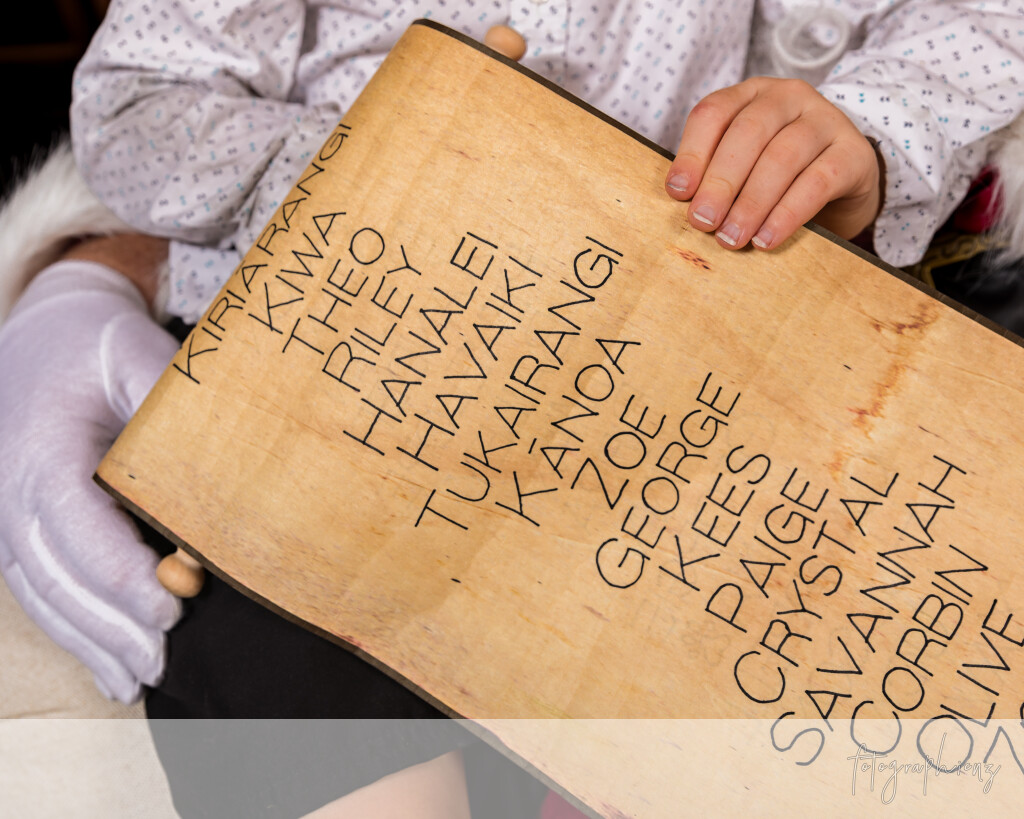 KIRIARANGI
KIWA
THEO
RILEY
HANALEI
HAVAIKI
TUKAIRANGI
KĀNOA
ZOE
GEORGE
KEES
PAIGE
CRYSTAL
SAVANNAH
CORBIN
OLIVE
fotographienz